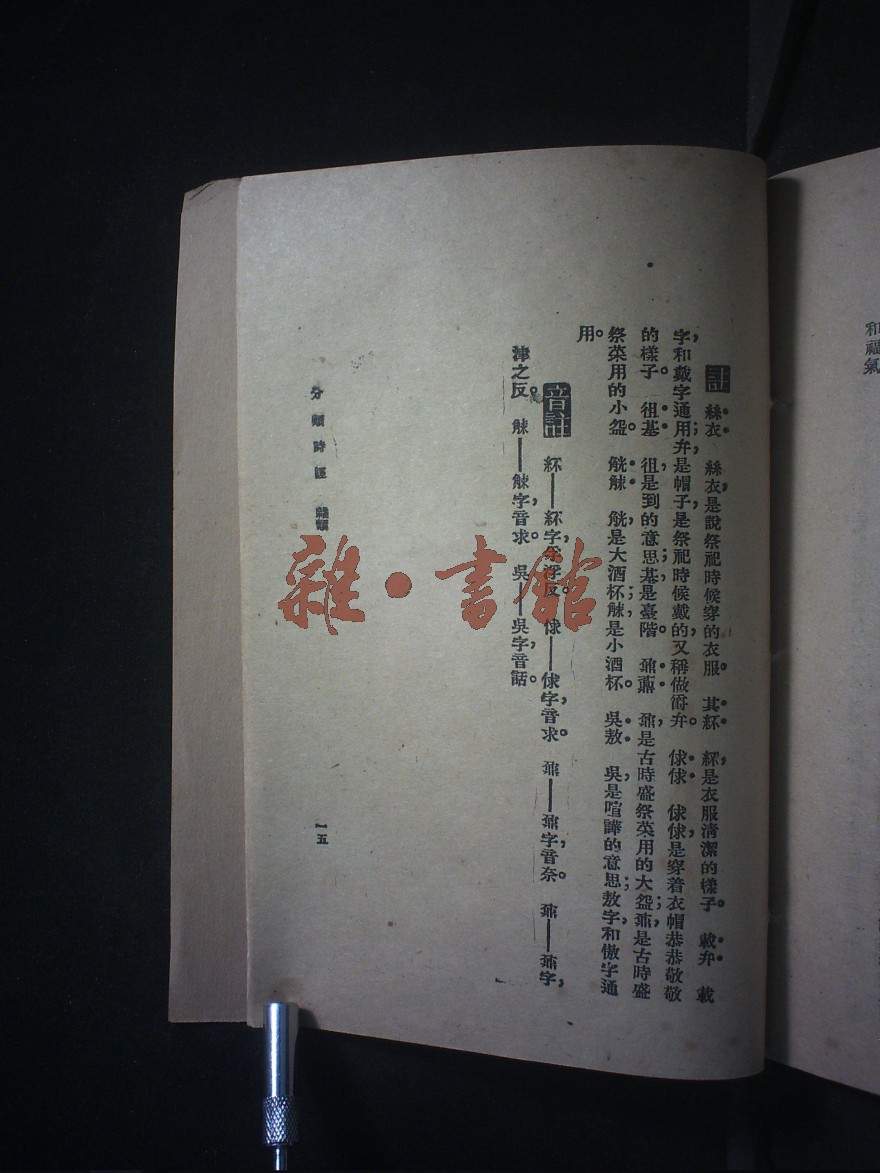 和福氣
註 絲衣 絲衣,是說祭祀時候穿的衣服。 其紑 紑,是衣服清潔的樣子。 載弁 載
字,和戴字通用;弁,是帽子,是祭祀時候戴的,又稱做爵弁。 俅俅 俅俅,是穿着衣帽恭恭敬敬
的樣子。 徂基 徂,是到的意思;基,是臺階。 鼐鼒 鼐,是古時盛祭菜用的大盌;鼒,是古時盛
祭菜用的小盌。 觥觩 觥,是大酒杯;觩,是小酒杯。 吳敖 吳,是喧譁的意思;敖字,和傲字通
用。
音註 紑——紑字,孚浮反。 俅——俅字,音求。 鼐——鼐字,音奈。 鼒——鼒字,
津之反。 觩——觩字,音求。 吳——吳字,音話。
分類詩經 雜類 一五
雜·書館